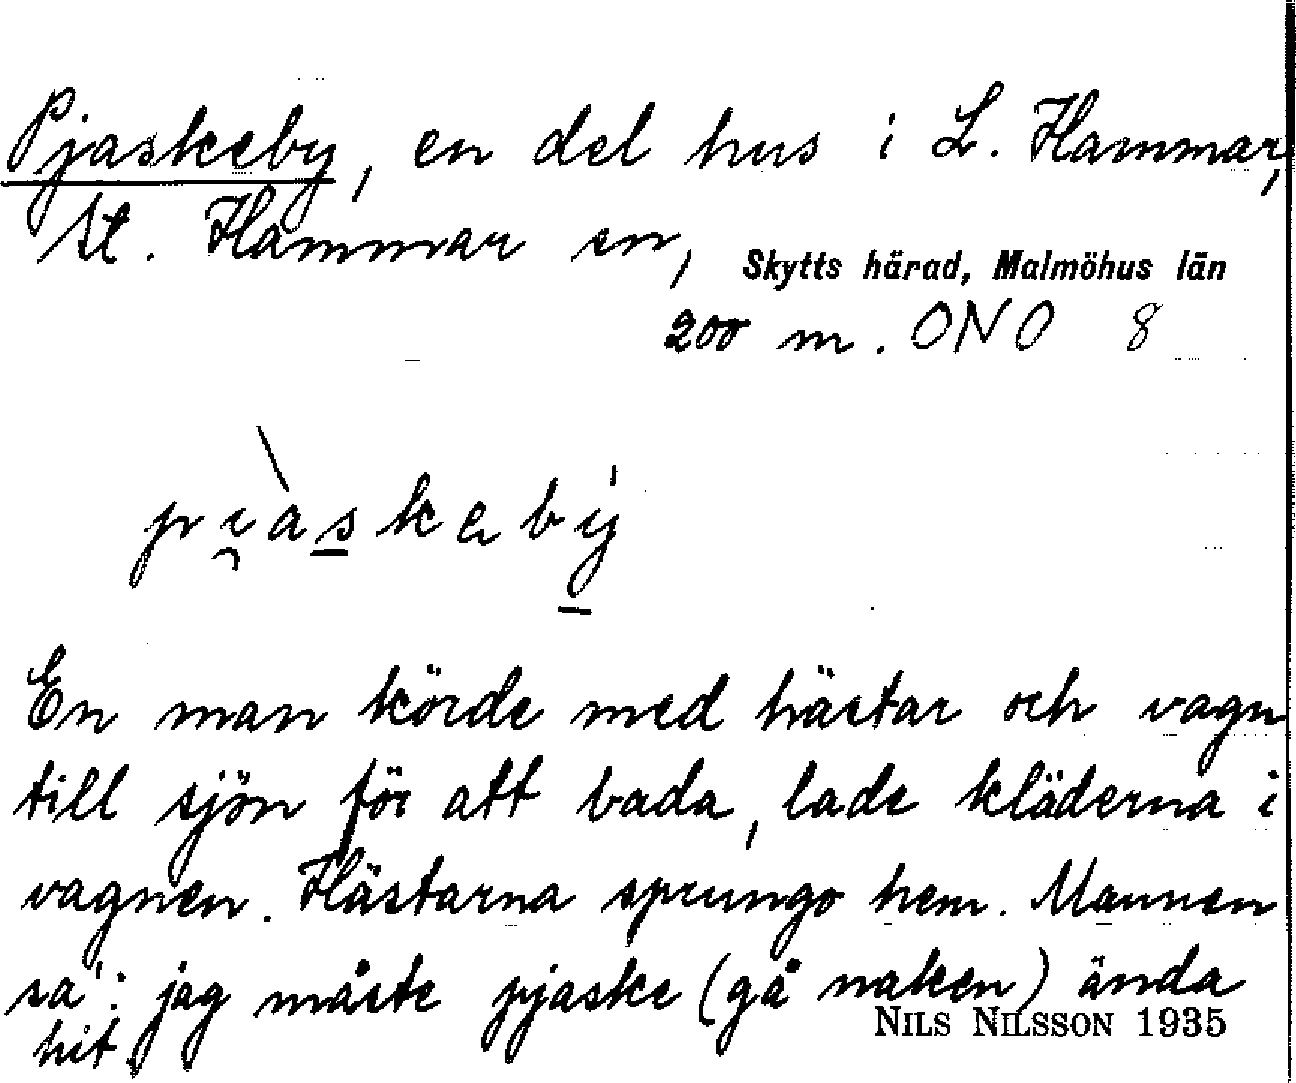 Pjaskeby, en del hus i L. Hammar,
St. Hammar sn,
Skytts härad, Malmöhus län
200 m. ONO 8
pi̯àskebý
En man körde med hästar och vagn
till sjön för att bada, lade kläderna i
vagnen. Hästarna sprungo hem. Mannen
sa': jag måste pjaske (gå naken) ända
hit.
NILS NILSSON 1935